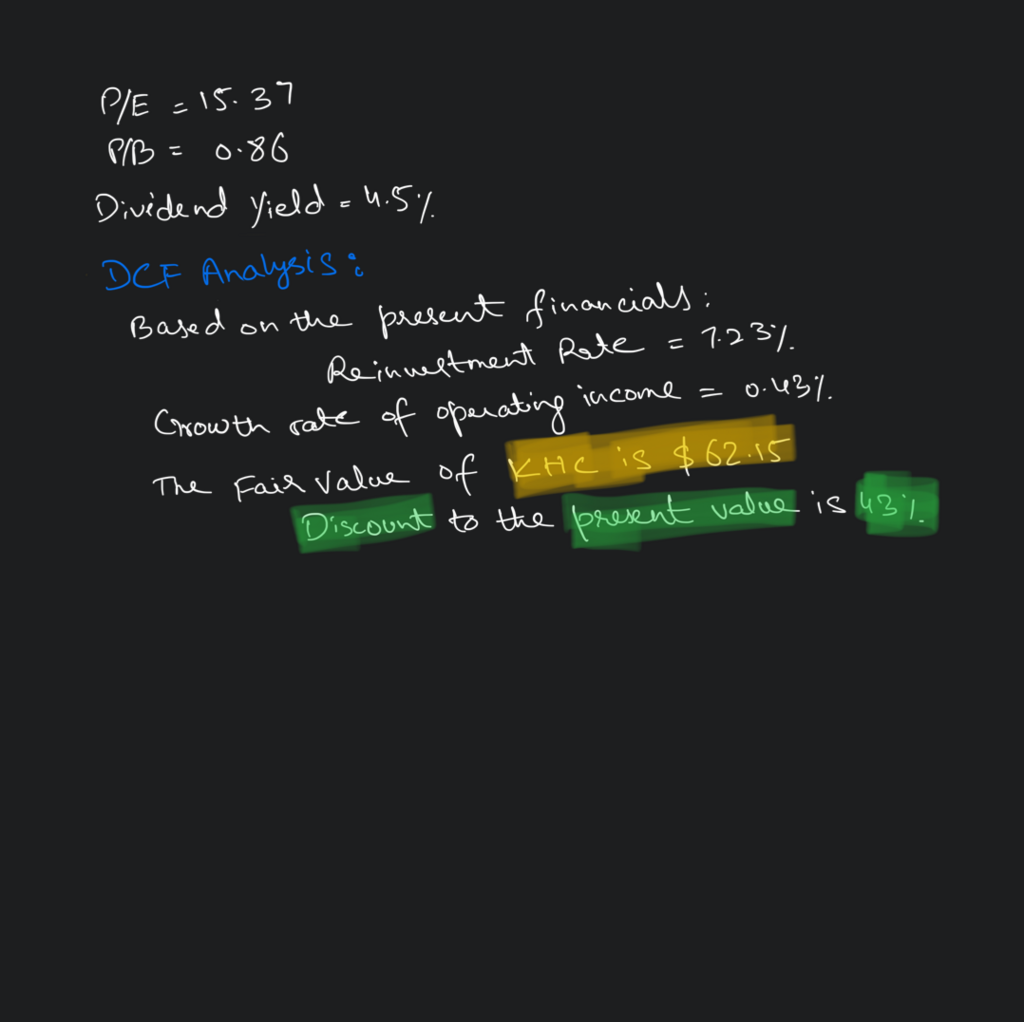 P/E = 15.37
P/B = 0.86
Dividend Yield = 4.5%
DCF Analysis:
Based on the present financials:
Reinvestment Rate = 7.23%
Growth rate of operating income = 0.43%
The Fair Value of KHC is $62.15
Discount to the present value is 43%